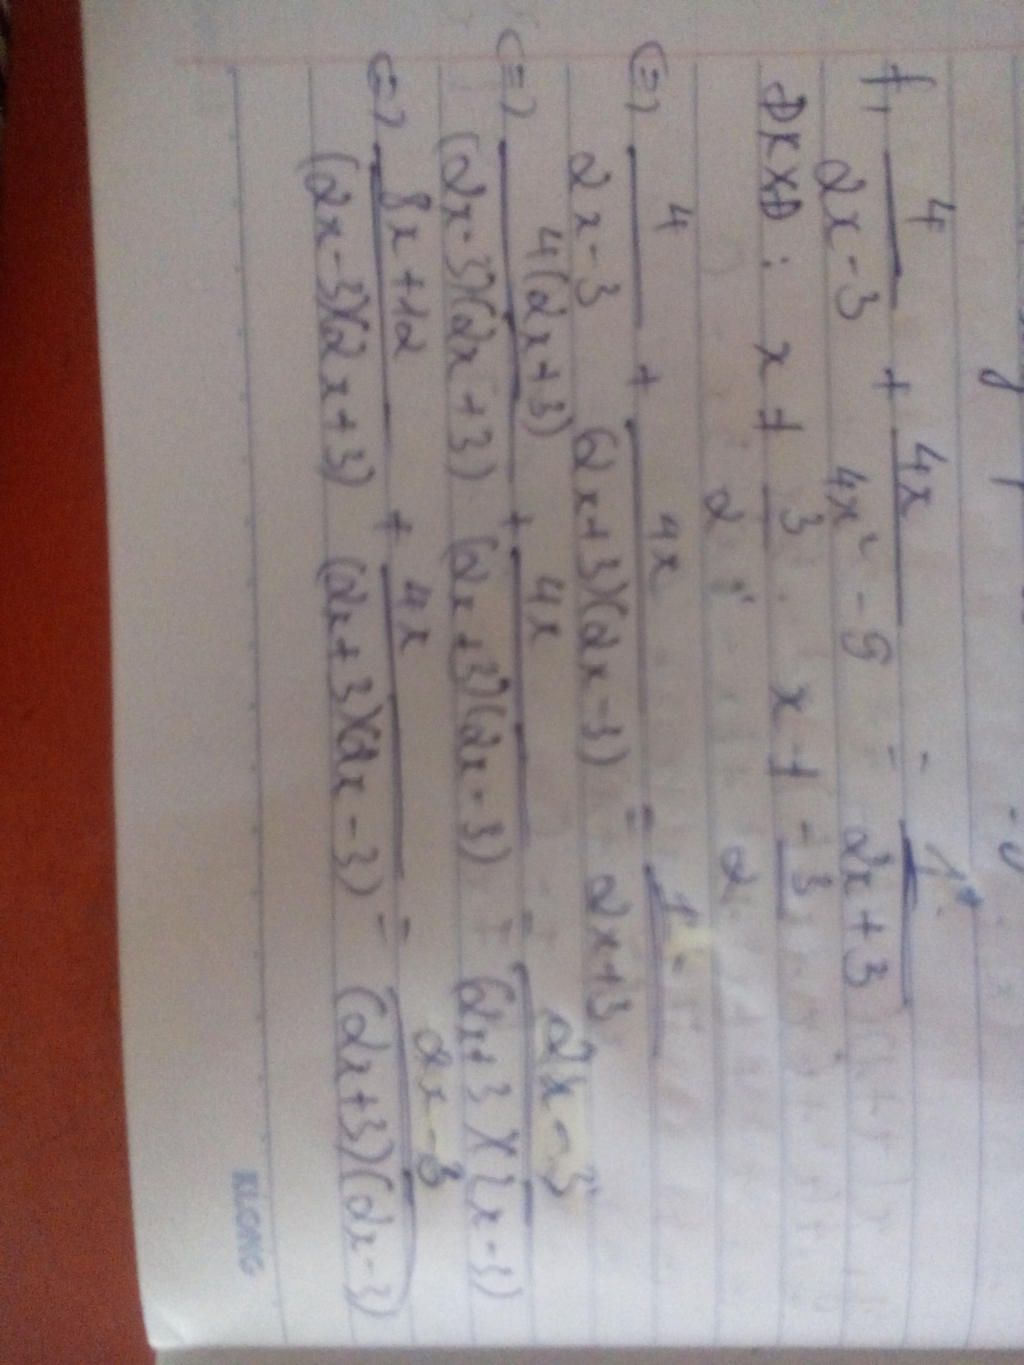 f, 4/(2x-3) + 4x/(4x²-9) = 1/(2x+3)
ĐKXĐ: x ≠ 3/2 ; x ≠ -3/2
(=) 4/(2x-3) + 4x/((2x+3)(2x-3)) = 1/(2x+3)
(=) 4(2x+3)/((2x-3)(2x+3)) + 4x/((2x+3)(2x-3)) = (2x-3)/((2x+3)(2x-3))
(=) (8x+12)/((2x-3)(2x+3)) + 4x/((2x+3)(2x-3)) = (2x-3)/((2x+3)(2x-3))
KLONG